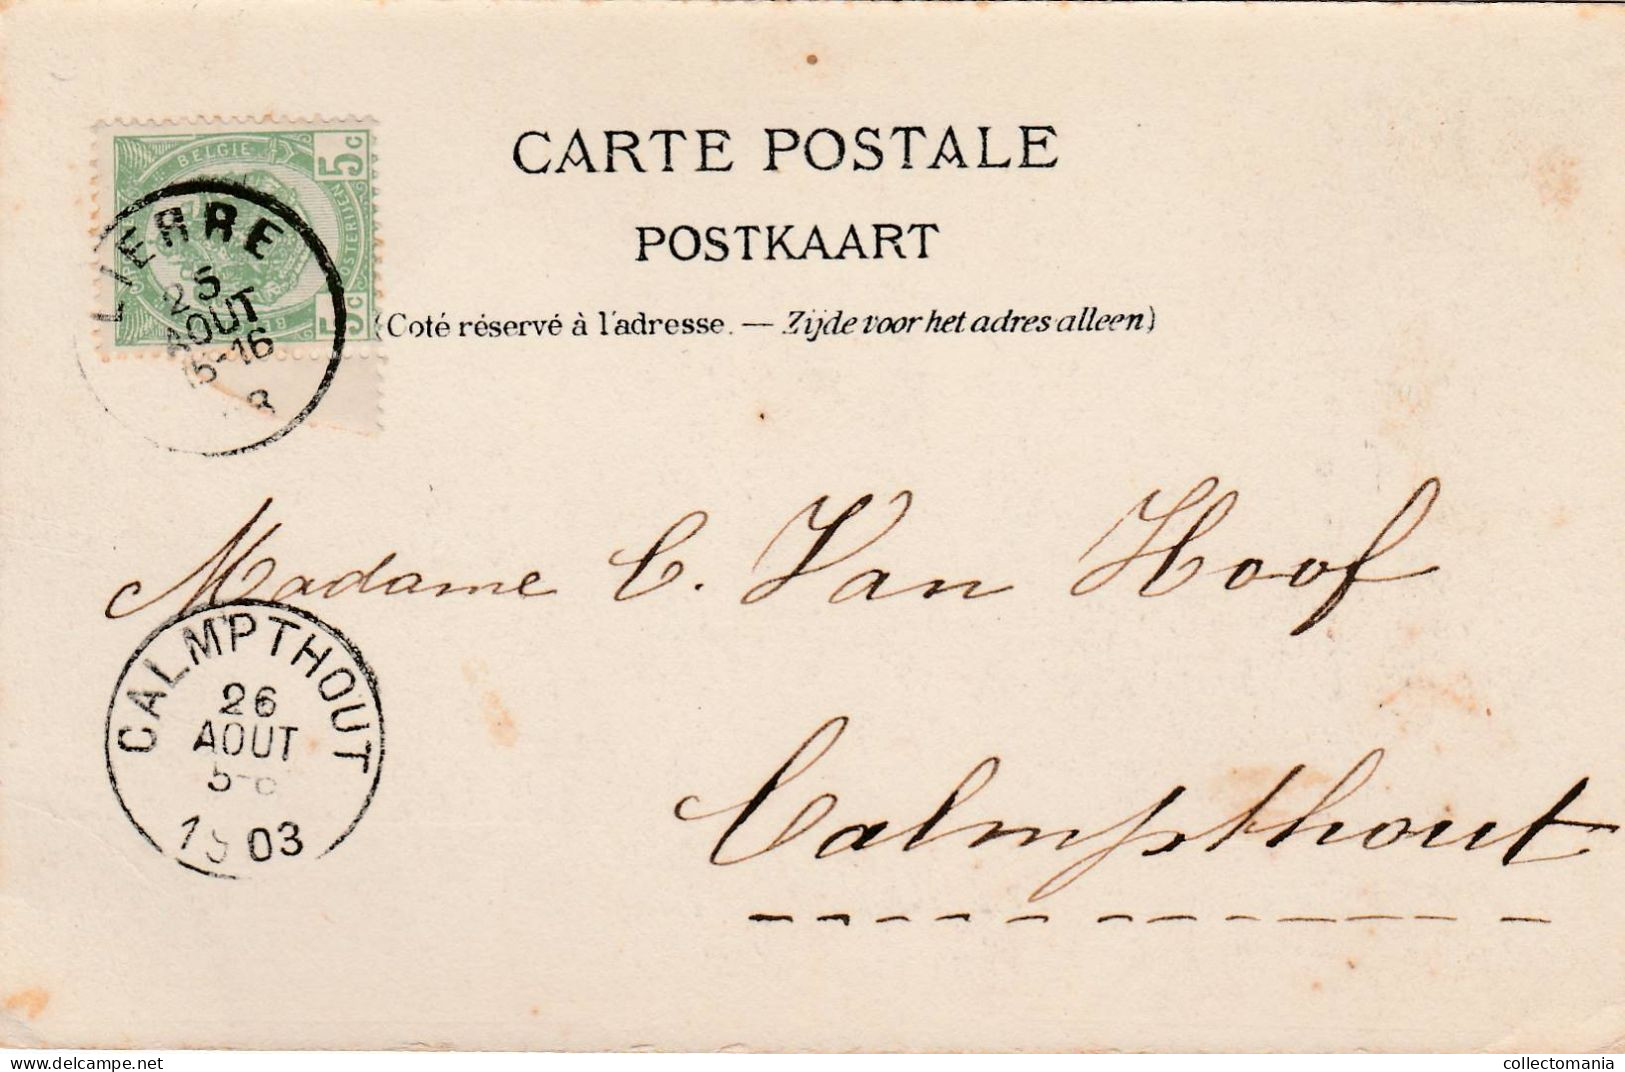 CARTE POSTALE
POSTKAART
(Coté réservé à l'adresse. — Zijde voor het adres alleen)
5c BELGIE 5c
LIERRE
25
AOUT
15-16
3
Madame C. Van Hoof
CALMPTHOUT
26
AOUT
5-6
1903
Calmpthout
delcampe.net
collectomania